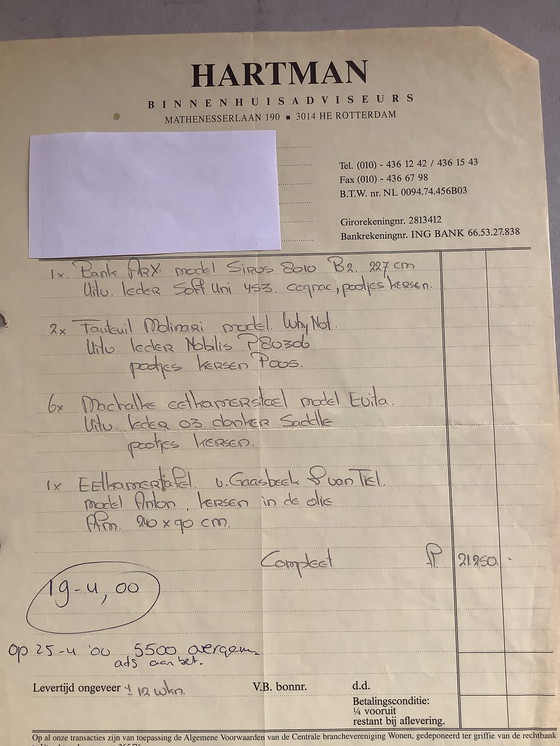 HARTMAN
BINNENHUISADVISEURS
MATHENESSERLAAN 190 ■ 3014 HE ROTTERDAM
Tel. (010) - 436 12 42 / 436 15 43
Fax (010) - 436 67 98
B.T.W. nr. NL 0094.74.456B03
Girorekeningnr. 2813412
Bankrekeningnr. ING BANK 66.53.27.838
1x. Bank model Sirus 8010 B2. 227 cm
Uitv. leder Soft Uni 453. cognac, pootjes kersen.
2x Fauteuil Molinari model. Why Not.
Uitv leder Nobilis P80306
pootjes kersen
6x Machalke eethamerstoel model Evita.
Uitv. leder 03 donker Saddle
pootjes kersen.
1x Eethamertafel. v. Gaasbeek & van Tiel.
model Anton, kersen in de olie
Afm. 240 x 90 cm.
Compleet 21250 -
19-4,00
op 25-4 '00 5500 overgem.
als aanbet.
Levertijd ongeveer ± 12 wkn. V.B. bonnr. d.d.
Betalingsconditie:
¼ vooruit
restant bij aflevering.
Op al onze transacties zijn van toepassing de Algemene Voorwaarden van de Centrale branchevereniging Wonen, gedeponeerd ter griffie van de rechtbank